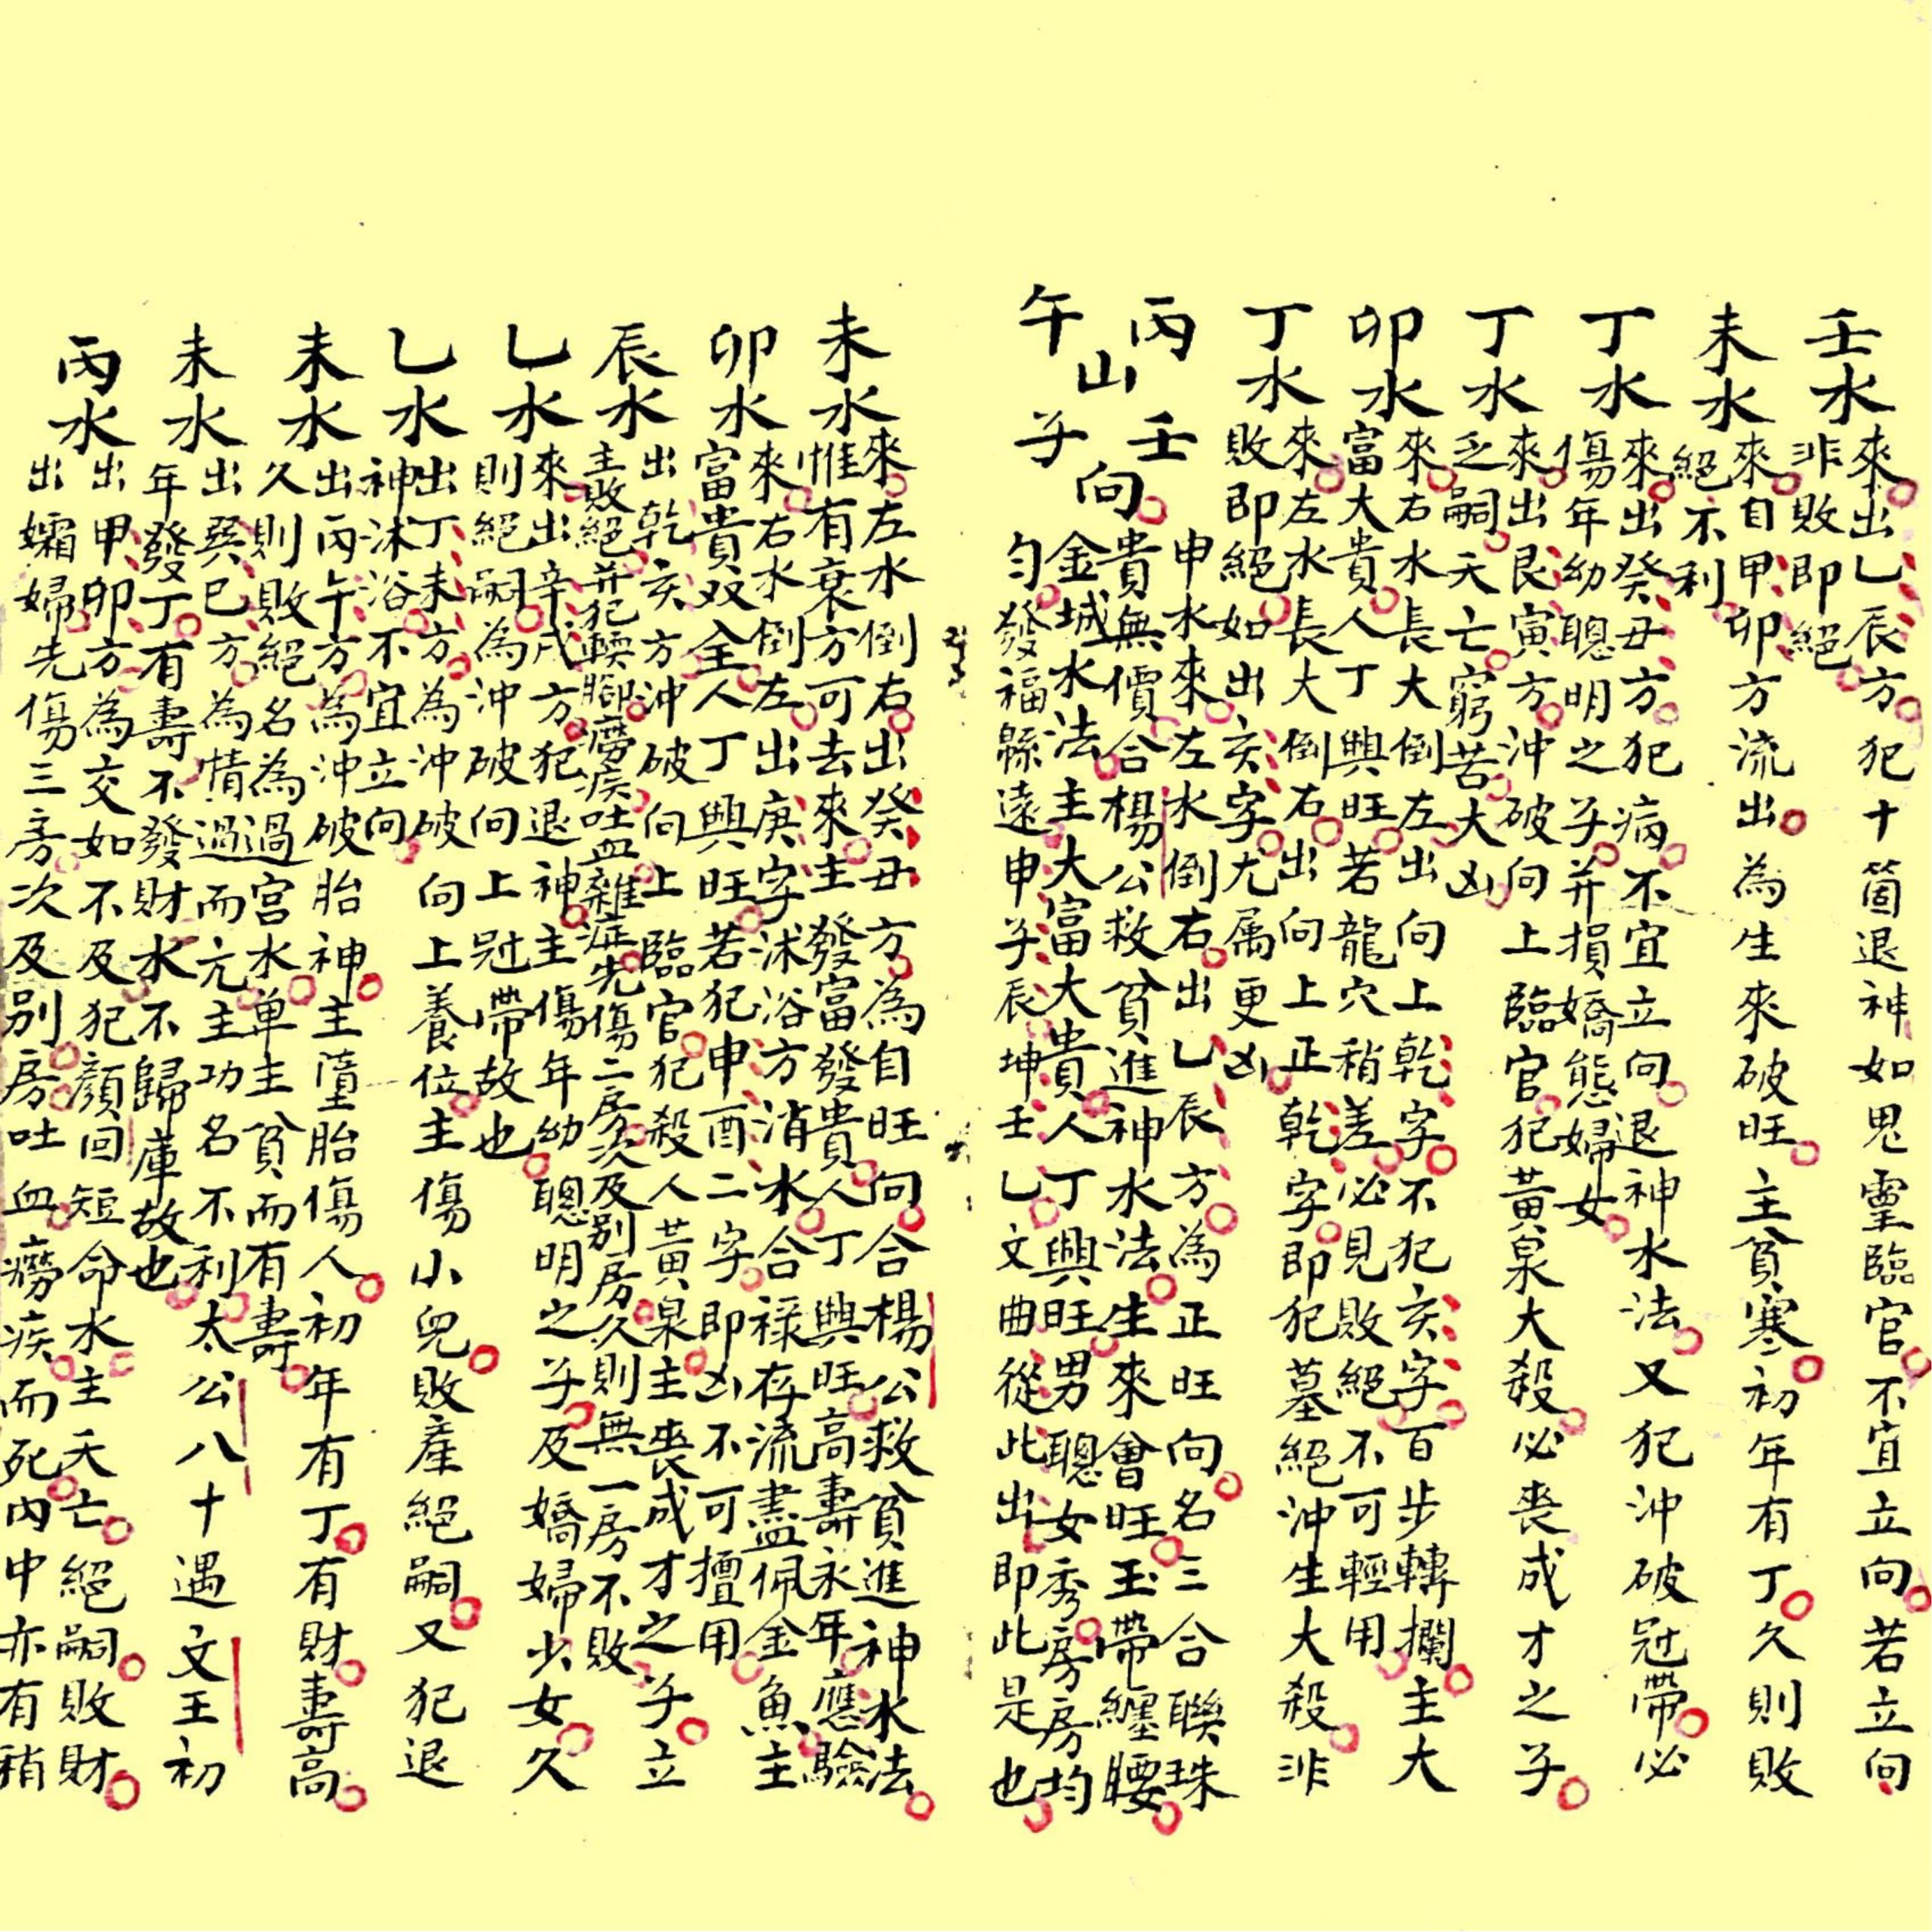 壬水
來出乙辰方犯十箇退神如鬼灵臨官不宜立向若立向
非敗即絕
未水
來自甲卯方流出為生來破旺主貧寒初年有丁久則敗
絕不利
丁水
來出癸丑方犯病不宜立向退神水法又犯沖破冠帶必
傷年幼聰明之子并損嬌態婦女
丁水
來出艮寅方沖破向上臨官犯黃泉大殺必喪成才之子
乏嗣夭亡窮苦大凶
卯水
來右水長大倒左出向上乾字不犯亥字百步轉攔主大
富大貴人丁興旺若龍穴稍差必見敗絕不可輕用
丁水
來左水長大倒右出向上正乾字即犯墓絕沖生大殺非
敗即絕如出亥字尤属更凶
丙壬
山向
午子
申水來左水倒右出乙辰方為正旺向名三合聯珠
貴無價合楊公救貧進神水法生來會旺玉帶纏腰
金城水法主大富大貴人丁興旺男聰女秀房房均
勻發福緜遠申子辰坤壬乙文曲從此出即此是也
未水
來左水倒右出癸丑方為自旺向合楊公救貧進神水法
惟有衰方可去來主發富發貴人丁興旺高壽永年應驗
卯水
來右水倒左出庚字沐浴方消水合祿存流盡佩金魚主
富貴双全人丁興旺若犯申酉二字即凶不可擅用
辰水
出乾亥方沖破向上臨官犯殺人黃泉主喪成才之子立
主敗絕并犯軟腳癆疾吐血雜症先傷二房次及别房久則無一房不敗
乙水
來出辛戌方犯退神主傷年幼聰明之子及嬌婦少女久
則絕嗣為沖破向上冠帶故也
乙水
出丁未方為沖破向上養位主傷小兒敗產絕嗣又犯退
神沐浴不宜立向
未水
出丙午方為沖破胎神主墮胎傷人初年有丁有財壽高
久則敗絕名為過宮水单主貧而有壽
未水
出巽巳方為情過而亢主功名不利太公八十遇文王初
年發丁有壽不發財水不歸庫故也
丙水
出甲卯方為交如不及犯顏回短命水主夭亡絕嗣敗財
出孀婦先傷三房次及别房吐血癆疾而死內中亦有稍